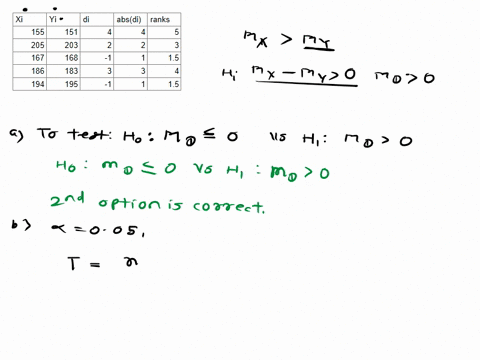 Xi Yi di abs(di) ranks
155 151 4 4 5
205 203 2 2 3
167 168 -1 1 1.5
186 183 3 3 4
194 195 -1 1 1.5
mX > mY
H: mX - mY > 0 mD > 0
a) To test: H0 : MD ≤ 0 vs H1 : MD > 0
H0 : mD ≤ 0 vs H1 : mD > 0
2nd option is correct.
b) α = 0.05,
T = n